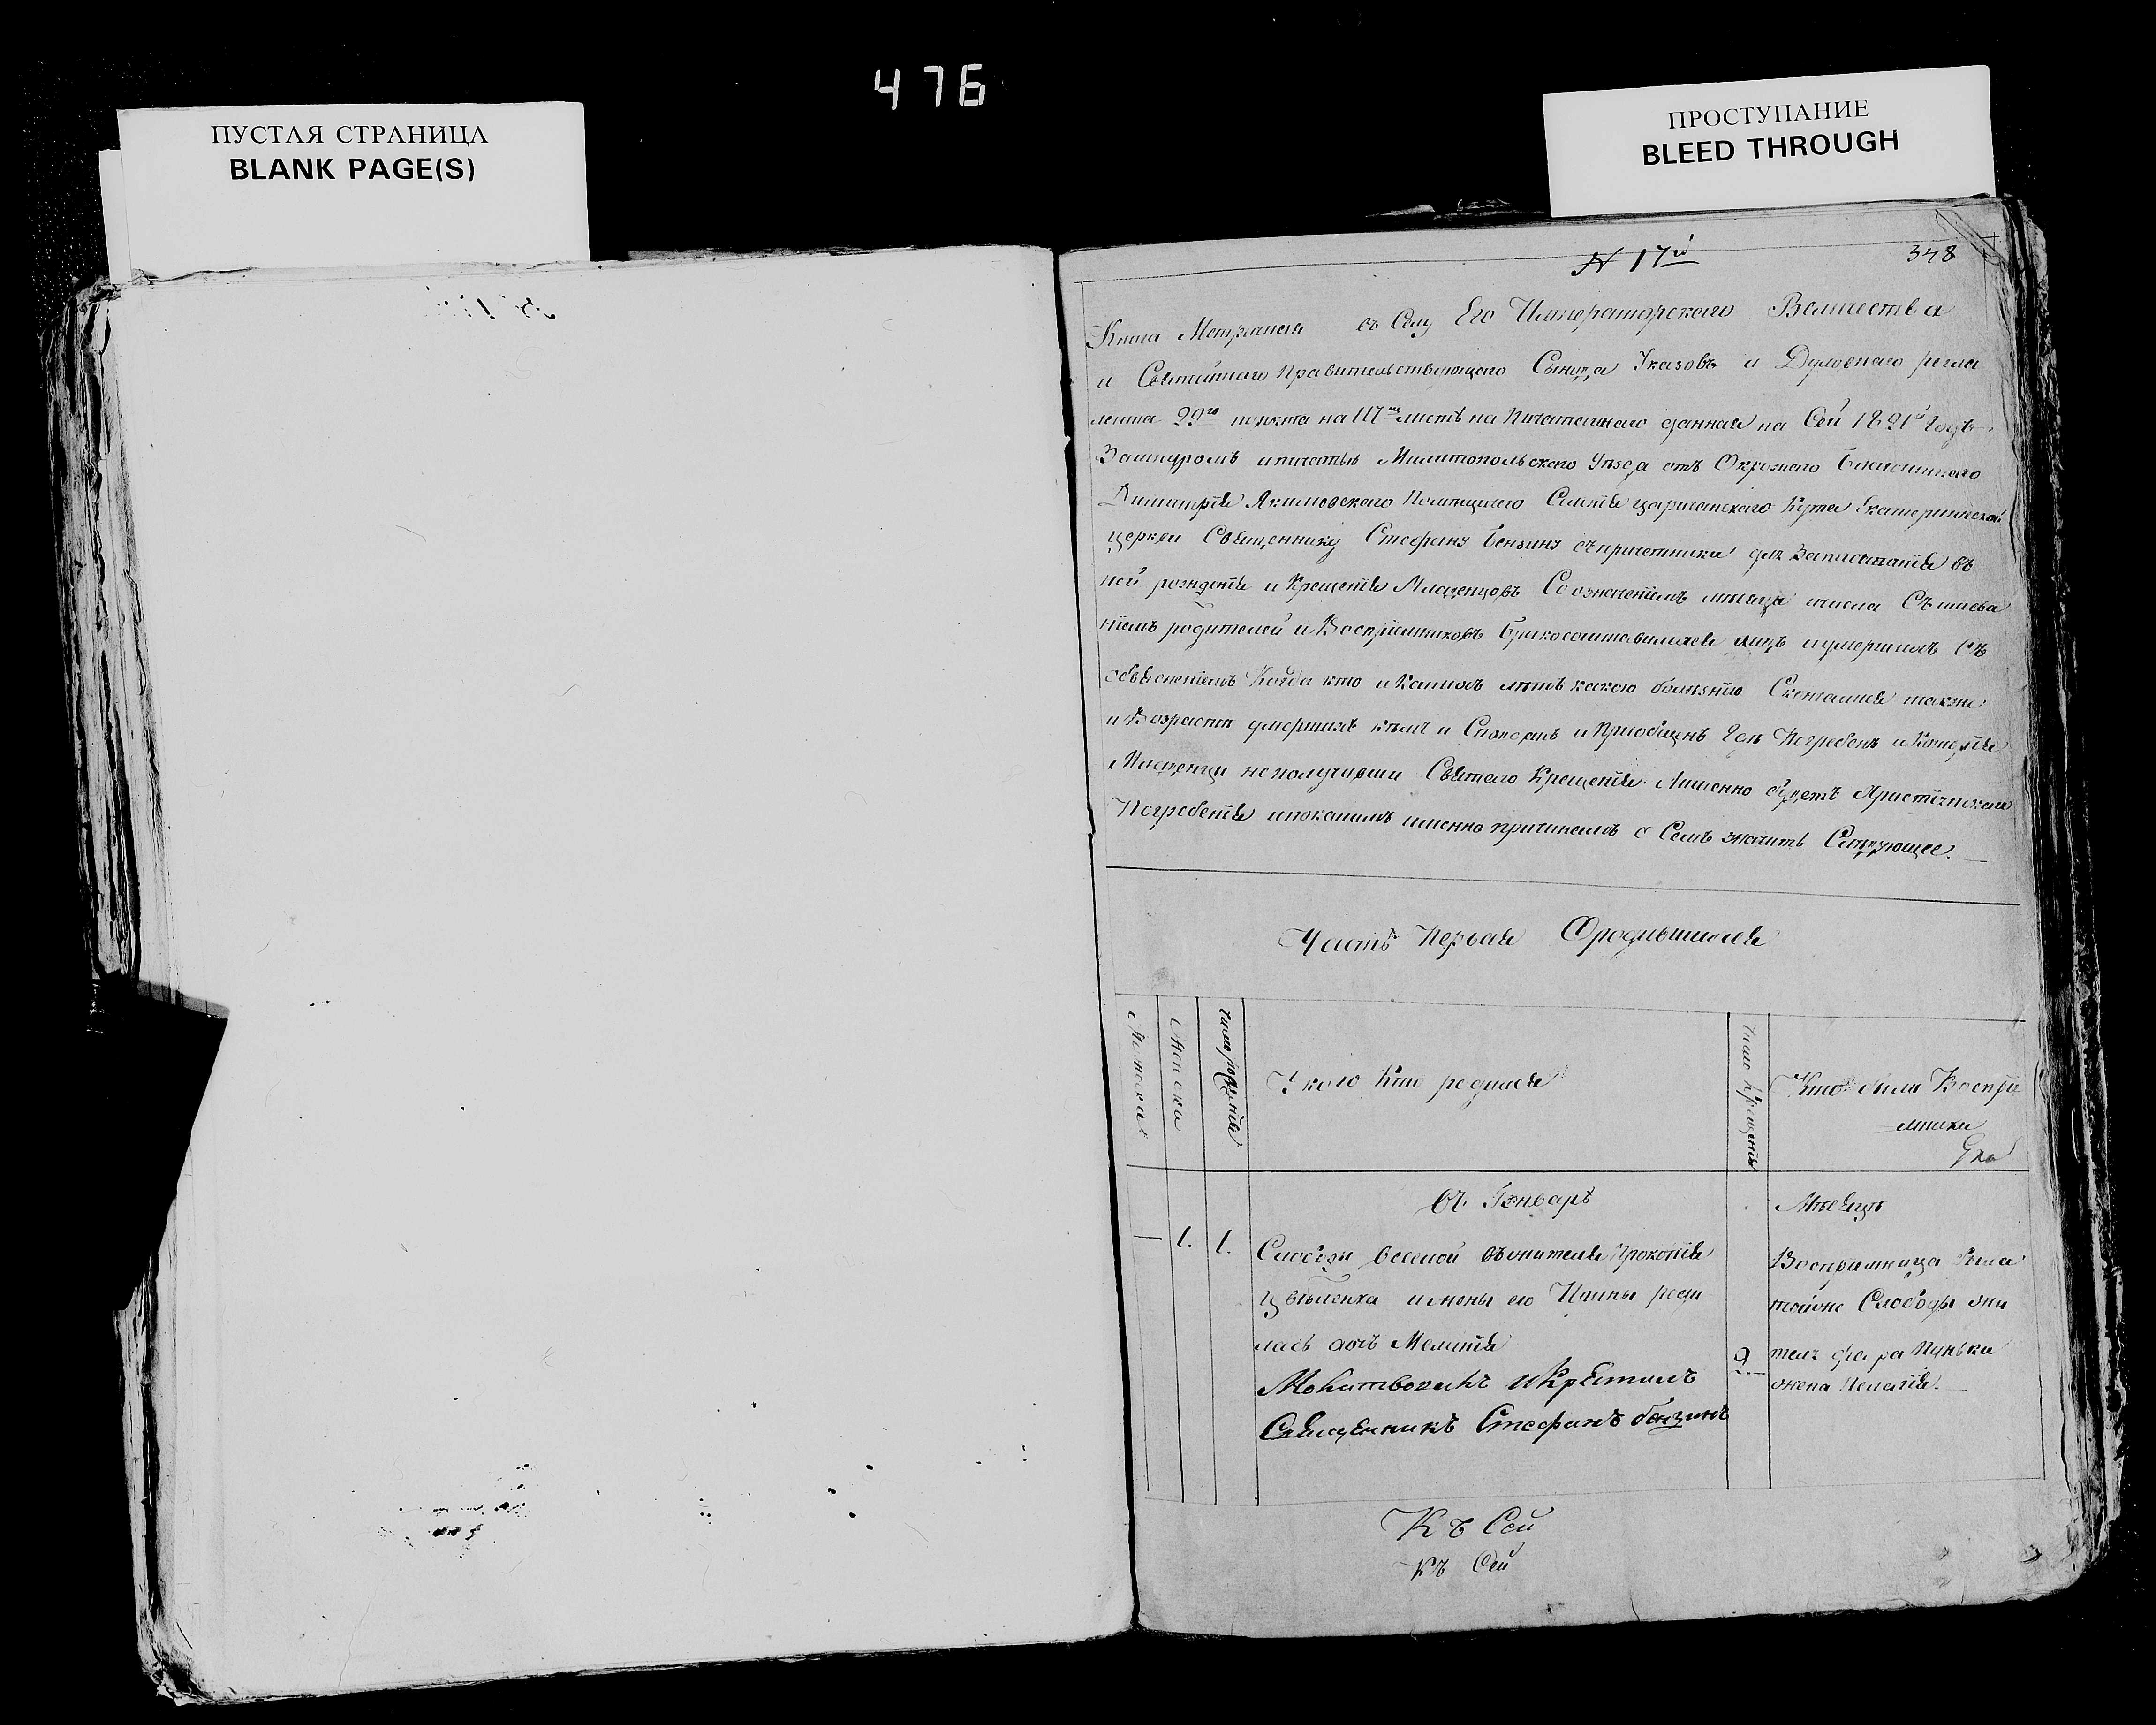 476
ПУСТАЯ СТРАНИЦА
BLANK PAGE(S)
ПРОСТУПАНИЕ
BLEED THROUGH
N 17й
348
Книга Метрическая въ Силу Его Императорского Величества
и Святейшаго Правительствующаго Сѵнода Указовъ и Духовнаго регла
мента 29го пункта на данная на Сей 1821й Годъ
Зашнуромъ ипечатью Милитопольского Уезда отъ Окружного благочиннаго
Димитрія Акимовского Селенія царичанскаго Кута Екатерининской
церкви Священнику Стефану Бензину съпричетники для Записыванія въ
ней рожденія и Крещенія Младенцовъ Со означеніемъ месяца числа Съ имена
ніемъ родителей и Воспріемниковъ бракосочитавшихся лицъ иумершихъ Съ
объясненіемъ Когда кто и Какою болезнію Скончался также
и Возрастъ умершихъ кемъ и Споведанъ и Приобщенъ Где Погребенъ и Которые
Младенцы неполучивши Святаго Крещенія Лишенно будетъ Христіянскаго
Погребенія ипокакимъ именно причинамъ о Семъ значитъ Следующее.
Часть Первая Ородившихся
Мужеска
Женска
число рожденія
У кого Кто родился
число Крещенія
Кто были Воспрі
емники
въ Генваре
Месяце
— 1. 1.
Слободы Веселой Прокопія
ижены его Ирины роди
лась дочь Меланія
Молитвовалъ иКрестилъ
Священникъ Стефанъ бензинъ
2.
Воспріемница была
тойже Слободы жи
теля
жена Пелагія.
Къ Сей
Къ Сей